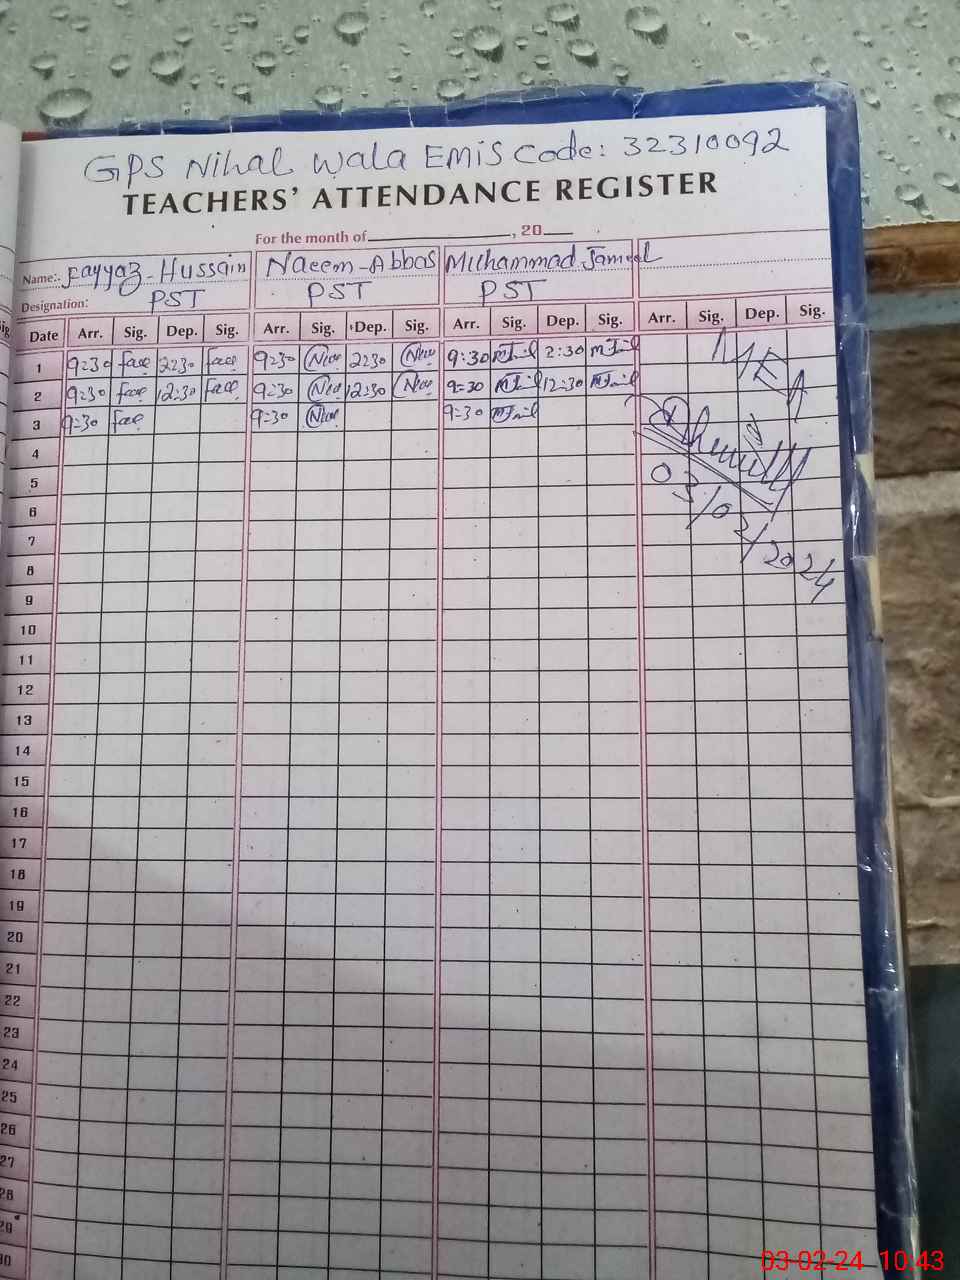 GPS Nihal Wala EMIS Code: 32310092
TEACHERS' ATTENDANCE REGISTER
For the month of , 20
Name:. Fayyaz-Hussain Naeem-Abbas Muhammad Jameel
Designation: PST PST PST
Date Arr. Sig. Dep. Sig. Arr. Sig. Dep. Sig. Arr. Sig. Dep. Sig. Arr. Sig. Dep. Sig.
1 9:30 2:30 9:30 2:30 9:30 2:30
2 9:30 12:30 9:30 12:30 9:30 12:30
3 9:30 9:30 9:30
MEA
03/02/2024
4
5
6
7
8
9
10
11
12
13
14
15
16
17
18
19
20
21
22
23
24
25
26
27
28
29
30
03-02-24 10:43